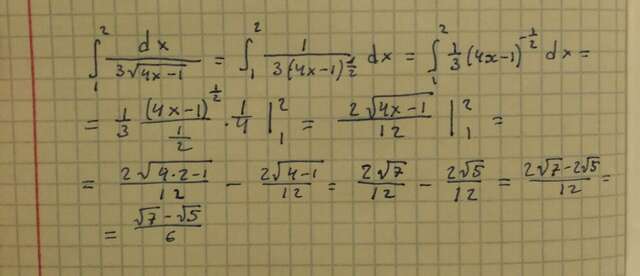 ∫₁² dx / (3√(4x-1)) = ∫₁² 1 / (3(4x-1)^(1/2)) dx = ∫₁² 1/3 (4x-1)^(-1/2) dx =
= 1/3 (4x-1)^(1/2) / (1/2) · 1/4 |₁² = 2√(4x-1) / 12 |₁² =
= 2√(4·2-1) / 12 - 2√(4-1) / 12 = 2√7 / 12 - 2√5 / 12 = (2√7-2√5) / 12 =
= (√7-√5) / 6